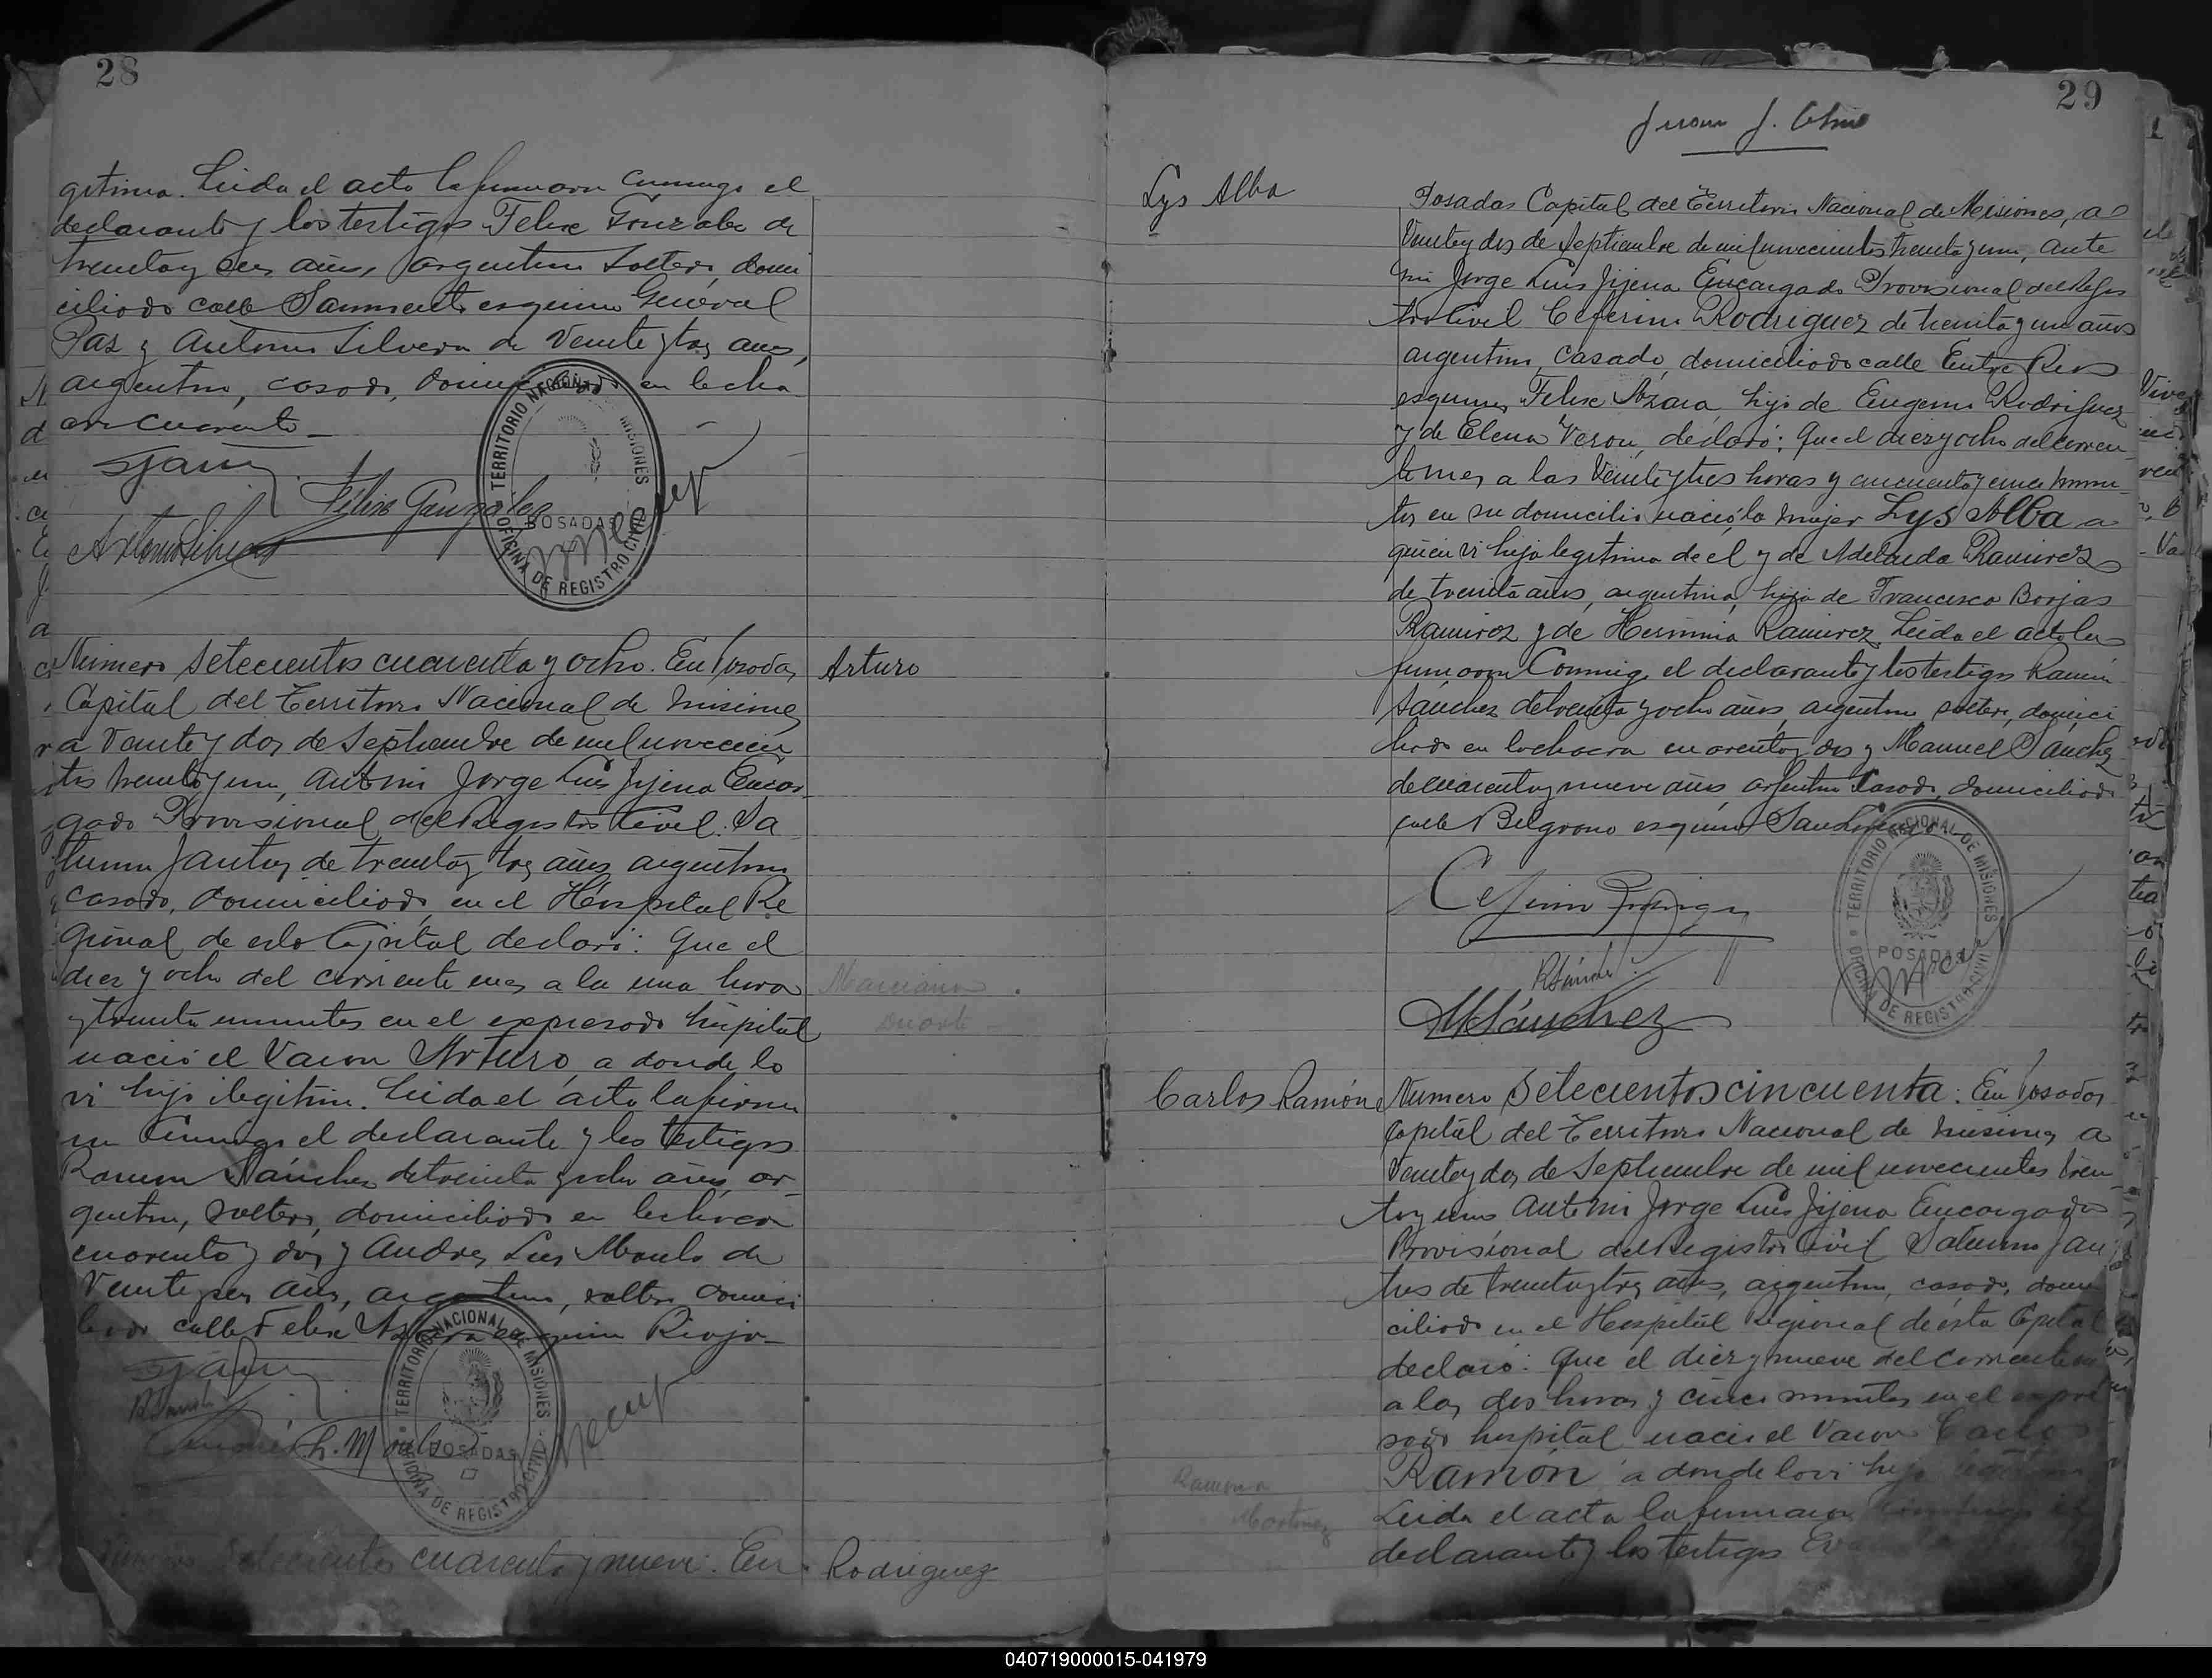 28
gitima. Leida el acta la firmaron conmigo el
declarante y los testigos Felix Gonzalez de
treinta y seis años, argentino soltero, domi
ciliado calle Sarmiento esquina General
Paz y Antonio Silvera de veinte y tres años,
argentino, casado, domiciliado en la chacra
cuarenta
Félix González
Antonio Silvera
TERRITORIO NACIONAL DE MISIONES
POSADAS
OFICINA DE REGISTRO CIVIL
Número setecientos cuarenta y ocho. En Posadas,
Arturo
Capital del Territorio Nacional de Misiones
a veinte y dos de Septiembre de mil novecien
tos treinta y uno, ante mi Jorge Luis Jijena Encar
gado Provisional del Registro Civil: Sa
turnino Jantus de treinta y tres años argentino
casado, domiciliado en el Hospital Re
gional de esta Capital declaró: Que el
diez y ocho del corriente mes a la una hora
y treinta minutos en el expresado hospital
Marciana
Duarte
nació el varon Arturo, a donde lo
vi hijo ilegitimo. Leida el acta la firma
ron conmigo el declarante y los testigos
Ramon Sánchez de treinta y ocho años, ar
gentino, soltero, domiciliado en la chacra
cuarenta y dos y Andres Luis Moulo de
veinte y seis años, argentino, soltero domici
liado calle Felix Azara esquina Rioja
TERRITORIO NACIONAL DE MISIONES
POSADAS
OFICINA DE REGISTRO CIVIL
Número setecientos cuarenta y nueve: En
Rodriguez
29
Lys Alba
Posadas Capital del Territorio Nacional de Misiones, a
veinte y dos de Septiembre de mil novecientos treinta y uno, ante
mi Jorge Luis Jijena Encargado Provisional del Regis
tro Civil Ceferino Rodriguez de treinta y un años
argentino, casado, domiciliado calle Entre Rios
esquina Felix Azara hijo de Eugenio Rodriguez
y de Elena Veron, declaró: Que el diez y ocho del corrien
te mes a las veinte y tres horas y cincuenta y cinco minu
tos en su domicilio nació la mujer Lys Alba a
quien vi hija legitima de él y de Adelaida Ramirez
de treinta años, argentina, hija de Francisco Borjas
Ramirez y de Herminia Ramirez. Leida el acta la
firmaron conmigo el declarante y los testigos Ramón
Sánchez de treinta y ocho años, argentino soltero, domici
liado en la chacra cuarenta y dos y Manuel Sánchez
de cuarenta y nueve años, argentino casado, domiciliado
calle Belgrano esquina San Lorenzo
R Sánchez
M Sánchez
TERRITORIO NACIONAL DE MISIONES
POSADAS
OFICINA DE REGISTRO CIVIL
Carlos Ramón
Número setecientos cincuenta: En Posadas
Capital del Territorio Nacional de Misiones a
veinte y dos de Septiembre de mil novecientos trein
ta y uno ante mi Jorge Luis Jijena Encargado
Provisional del Registro Civil Saturnino Jan
tus de treinta y tres años, argentino, casado, domi
ciliado en el Hospital Regional de ésta Capital
declaró: Que el diez y nueve del corriente mes
a las dos horas y cinco minutos en el expre
sado hospital nació el varon Carlos
Ramón a donde lo vi hijo
Ramona
Martinez
Leida el acta la firmaron conmigo el
declarante y los testigos
040719000015-041979